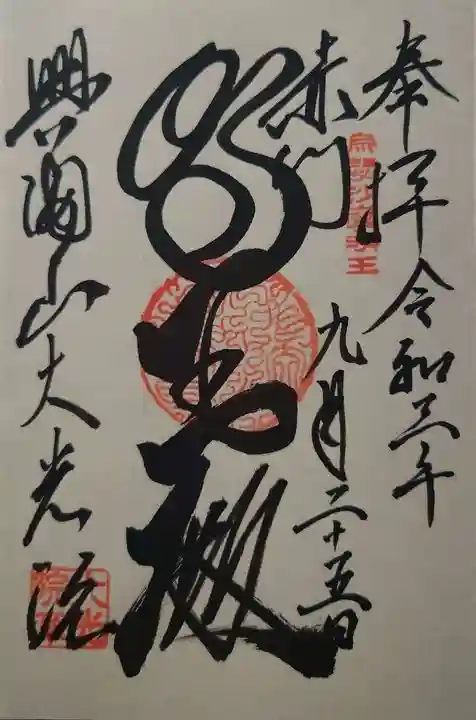 奉拝 令和三年
九月二十五日
赤門
明王殿
興國山大光院